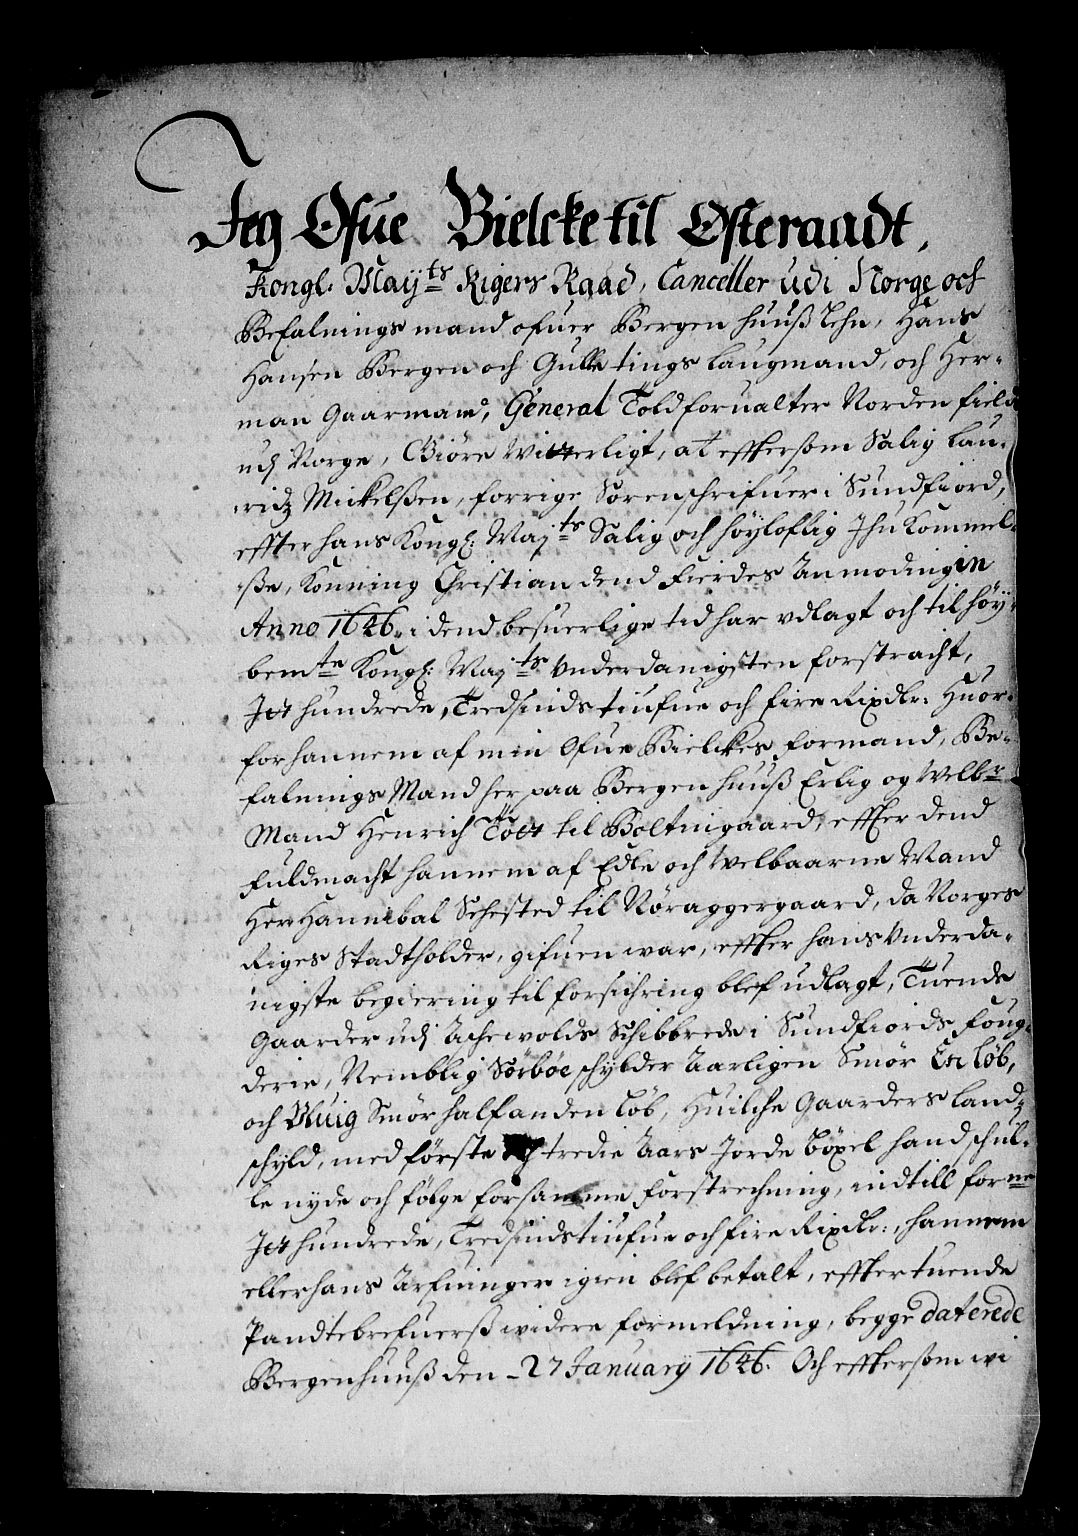 Jeg Ofue Bielcke til Østeraadt,
Kongl: May:ts Rigers Raad, Canceller udi Norge och
Befalnings mand ofuer Bergen huuß Lehn, Hans
Hansen Bergen och Gulle tings Laugmand, och Her-
man Gaarmand, General Toldforualter Norden field
udj Norge, Giöre Witterligt, at effterßom Salig Lau-
ridz Mickelßen, forrige Sorenschrifuer i Sundfiord,
effter hans Kongl: May:ts Salig och höylofflig Ihu Kommel-
ße, Konning Christian dend Fierdes Anmodingen
Anno 1646. i dend besuerlige tid har udlagt och til höy-
bem:te Kongl: May:ts Underdanigsten forstracht,
Jet hundrede, Tredsinds tiufue och fire Rixdlr: Huor-
for hannem af min Ofue Bielckes formand, Be-
falnings Mand her paa Bergen huuß Erlig og Welb:r
Mand Henrich Tött til Boltinggaard, effter dend
Fuldmacht hannem af Edle och Welbaarne Mand
Her Hannibal Sehested til Nöraggergaard, da Norges
Riges Stadtholder, gifuen war, effter hans Underda-
nigste begiering til forsichring blef udlagt, Tuende
Gaarder udj Achewolds Schibbrede i Sundfiords foug-
derie, Nemblig Sörböe schylder Aarligen Smör En Löb,
och Huig Smör halfanden Löb, Huilche Gaarders Land-
schyld, med förste og tredie Aars Jorde Böxel hand schul-
le nyde och fölge for samme forstrechning, indtill for:ne
Jet hundrede, Tredsinds tiufue och fire Rixdlr:, hannem
eller hans Arfuinger igien blef betalt, effter tuende
Pandtebrefuerß widere formeldning, begge daterede
Bergenhuuß den 27 January 1646. Och effterßom wi